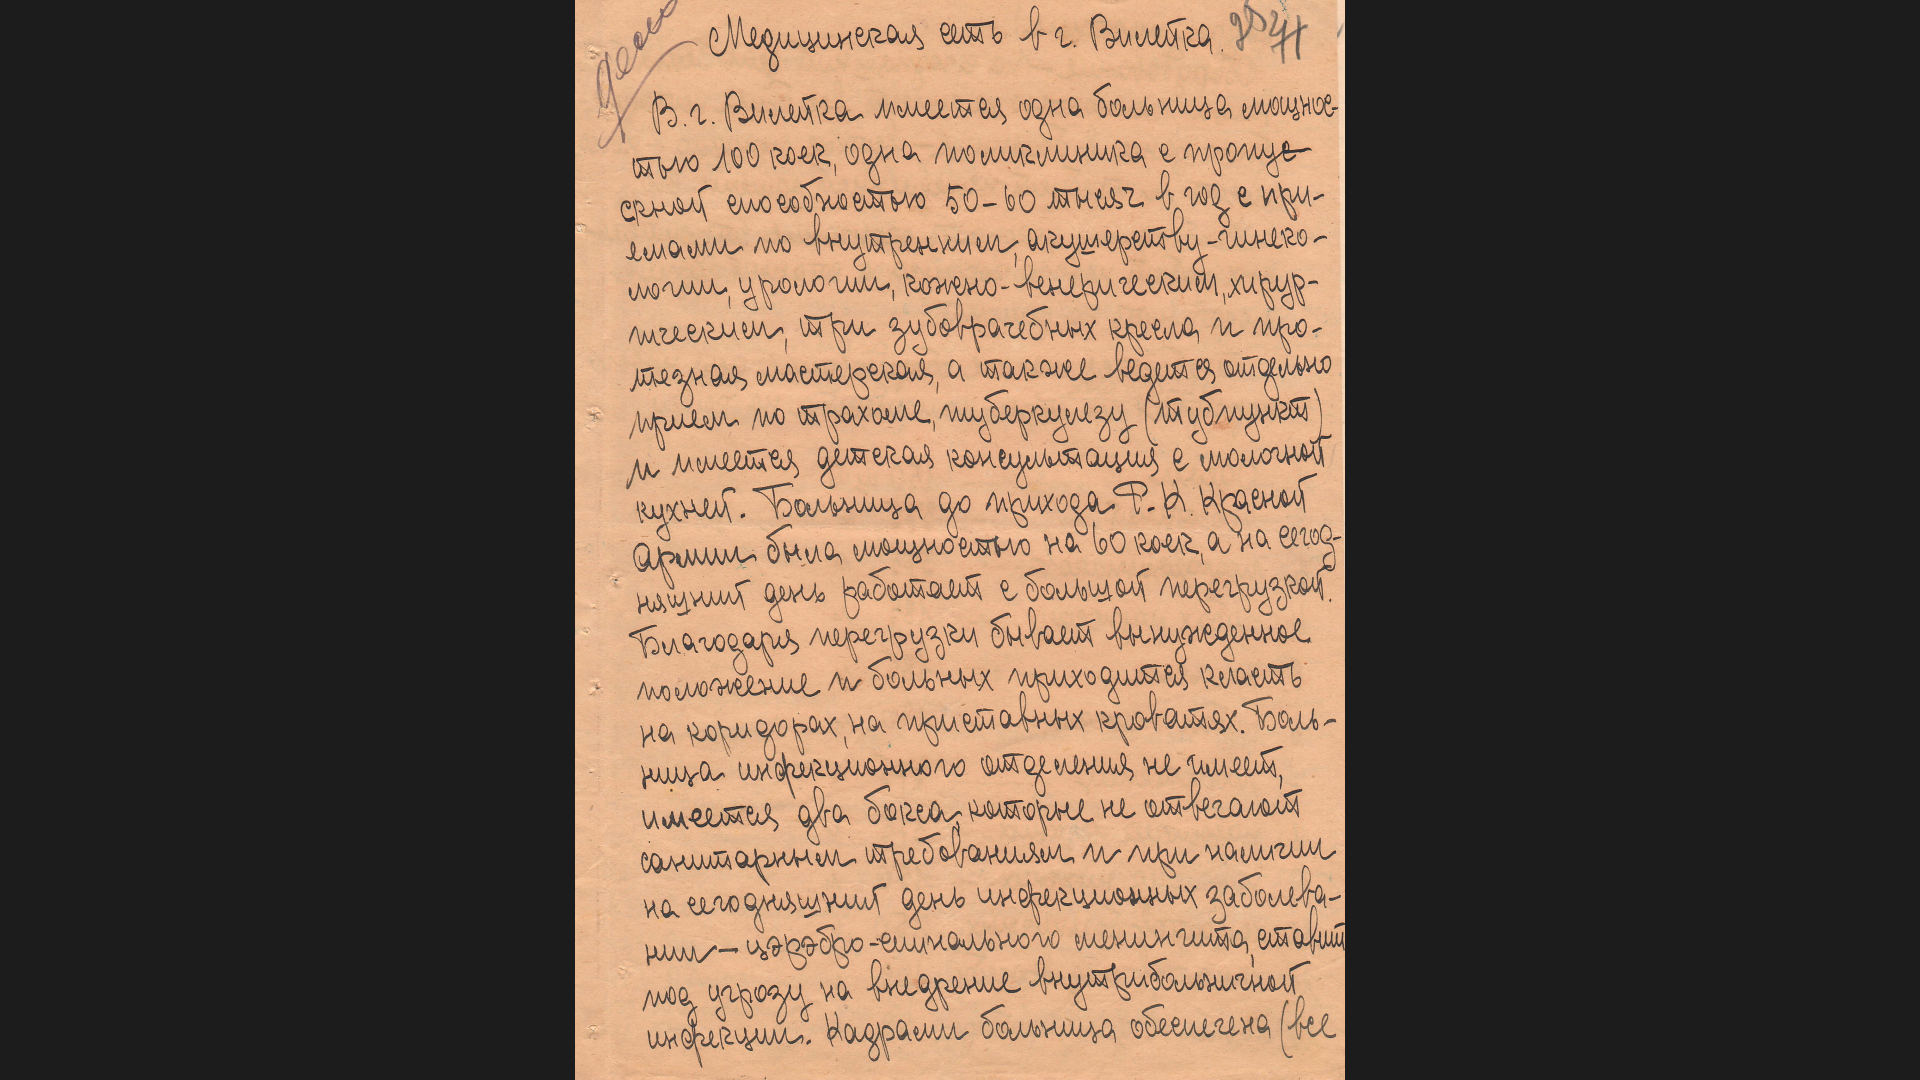 Медицинская сеть в г. Вилейка.
В. г. Вилейка имеется одна больница мощнос-
тью 100 коек, одна поликлиника с пропус-
скной способностью 50-60 тысяч в год с при-
емами по внутренним, акушерству-гинеко-
логии, урологии, кожно-венерическим, хирур-
гическим, три зубоврачебных кресла и про-
тезная мастерская, а также ведется отдельно
прием по трахоме, туберкулезу (тубпункт)
и имеется детская консультация с молочной
кухней. Больница до прихода Р.К. Красной
Армии была мощностью на 60 коек, а на сегод-
няшний день работает с большой перегрузкой.
Благодаря перегрузки бывает вынужденное
положение и больных приходится класть
на коридорах, на приставных кроватях. Боль-
ница инфекционного отделения не имеет,
имеется два бокса, которые не отвечают
санитарным требованиям и при наличии
на сегодняшний день инфекционных заболева-
нии - цэрэбро-спинального менингита, ставит
под угрозу на внедрение внутрибольничной
инфекции. Кадрами больница обеспечена (все